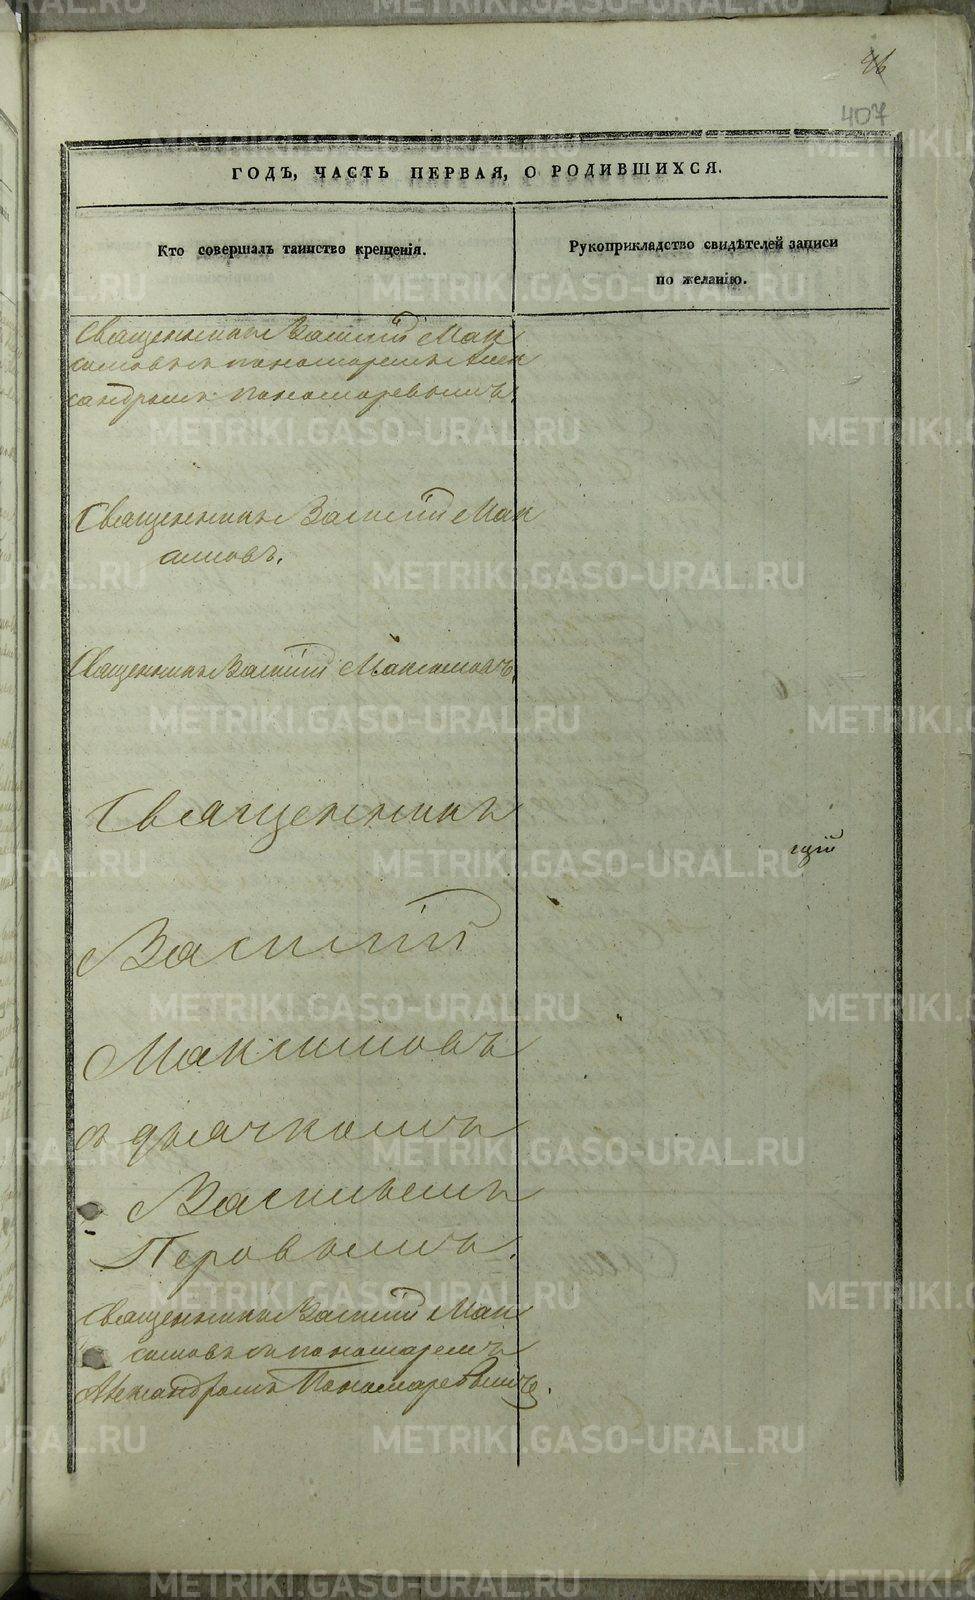 46
407
ГОДЪ, ЧАСТЬ ПЕРВАЯ, О РОДИВШИХСЯ.
Кто совершалъ таинство крещенія.
Рукоприкладство свидѣтелей записи
по желанію.
Священникъ Василій Мак
симовъ съ пономаремъ Алек
сандромъ Пономаревымъ
Священникъ Василій Мак
симовъ.
Священникъ Василій Максимовъ.
Священникъ
щій
Василій
Максимовъ
съ дьячкомъ
Васильемъ
Перовымъ.
Священникъ Василій Мак
симовъ съ пономаремъ
Александромъ Пономаревымъ.
METRIKI.GASO-URAL.RU